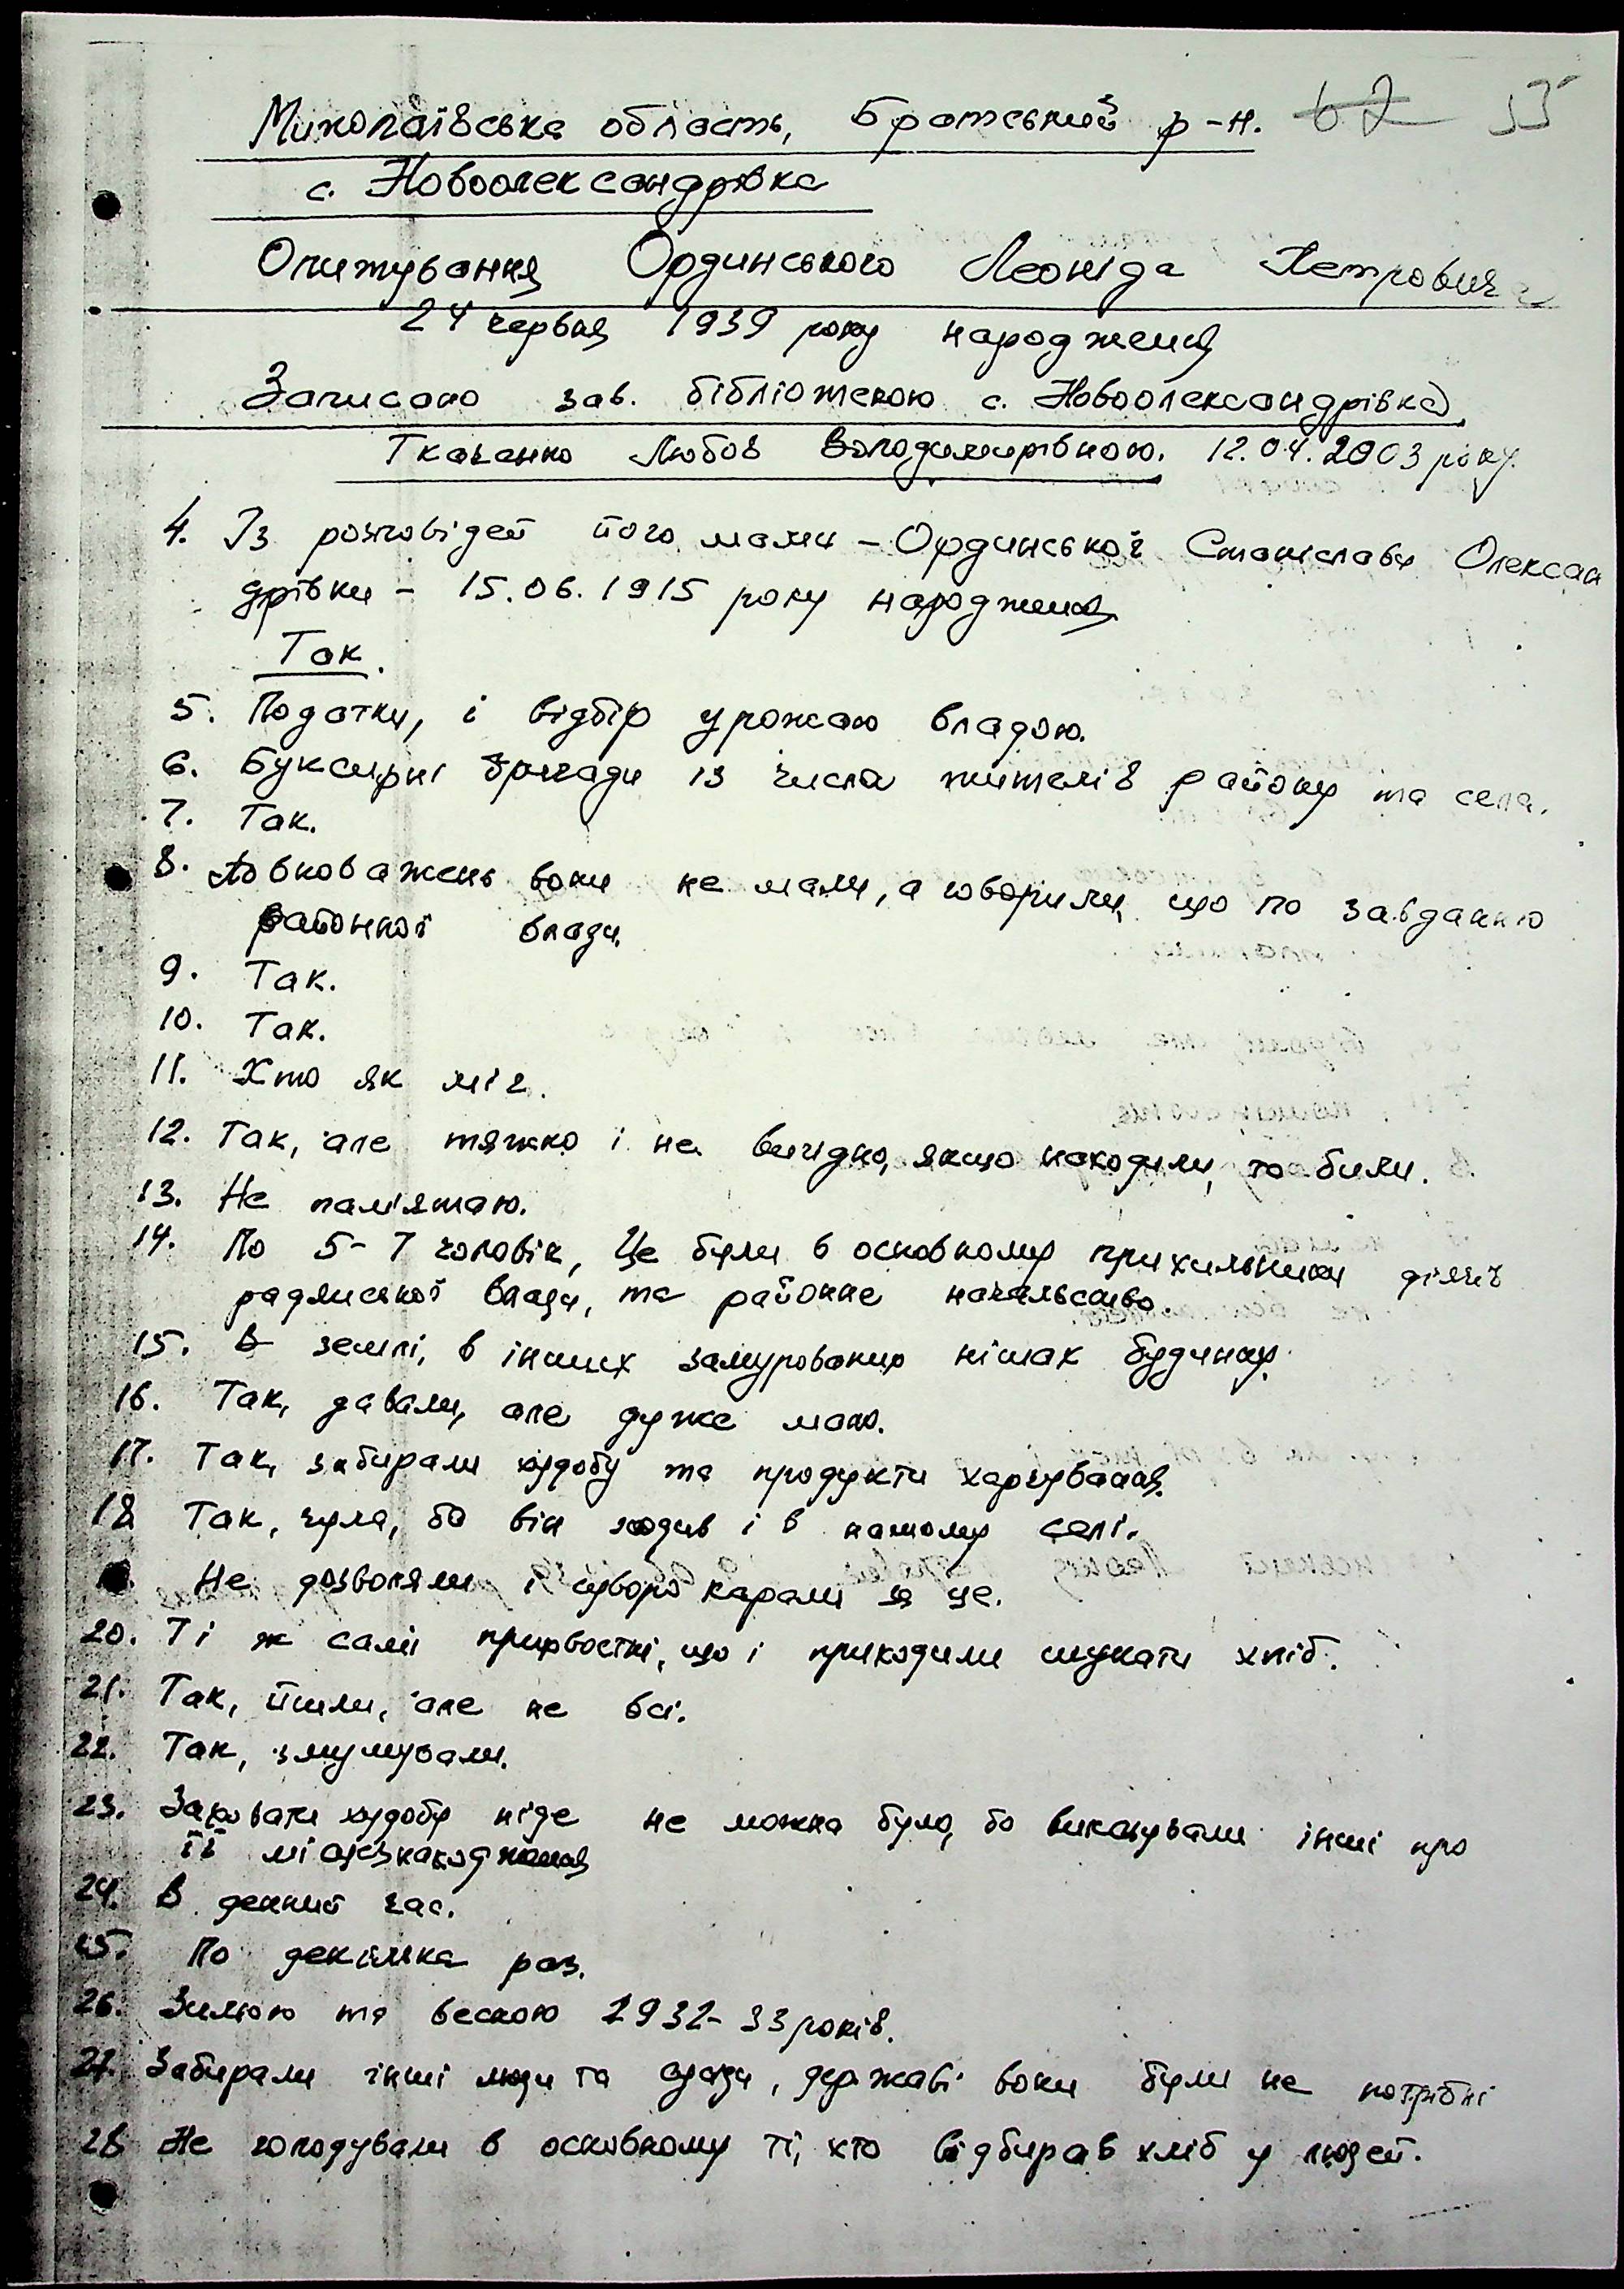 Миколаївська область, Братський р-н. 62 53
с. Новоолександрівка
Опитування Ординського Леоніда Петровича
24 червня 1939 року народження
Записано зав. бібліотекою с. Новоолександрівка
Ткаченко Любов Володимирівною. 12.04.2003 року.
4. Із розповідей його мами – Ординської Станіслави Олексан
дрівни – 15.06.1915 року народження
Так.
5. Податки, і відбір урожаю владою.
6. Буксирні бригади із числа жителів району та села.
7. Так.
8. Повноважень вони не мали, а говорили, що по завданню
районної влади.
9. Так.
10. Так.
11. Хто як міг.
12. Так, але тяжко і не вигідно, якщо находили, то били.
13. Не пам'ятаю.
14. По 5-7 чоловік, Це були в основному прихильники діячів
радянської влади, та районне начальство.
15. В землі, в інших замурованих нішах будинку.
16. Так, давали, але дуже мало.
17. Так, забирали худобу та продукти харчування.
18 Так, чула, бо він ходив і в нашому селі.
Не дозволяли і суворо карали за це.
20. Ті ж самі прихвостні, що і приходили шукати хліб.
21. Так, йшли, але не всі.
22. Так, змушували.
23. Заховати худобу ніде не можна було, бо виказували інші про
її місцезнаходження
24. В денний час.
25. По декілька раз.
26. Зимою та весною 1932-33 років.
27. Забирали інші люди та сусіди, державі вони були не потрібні
28 Не голодували в основному ті, хто відбирав хліб у людей.